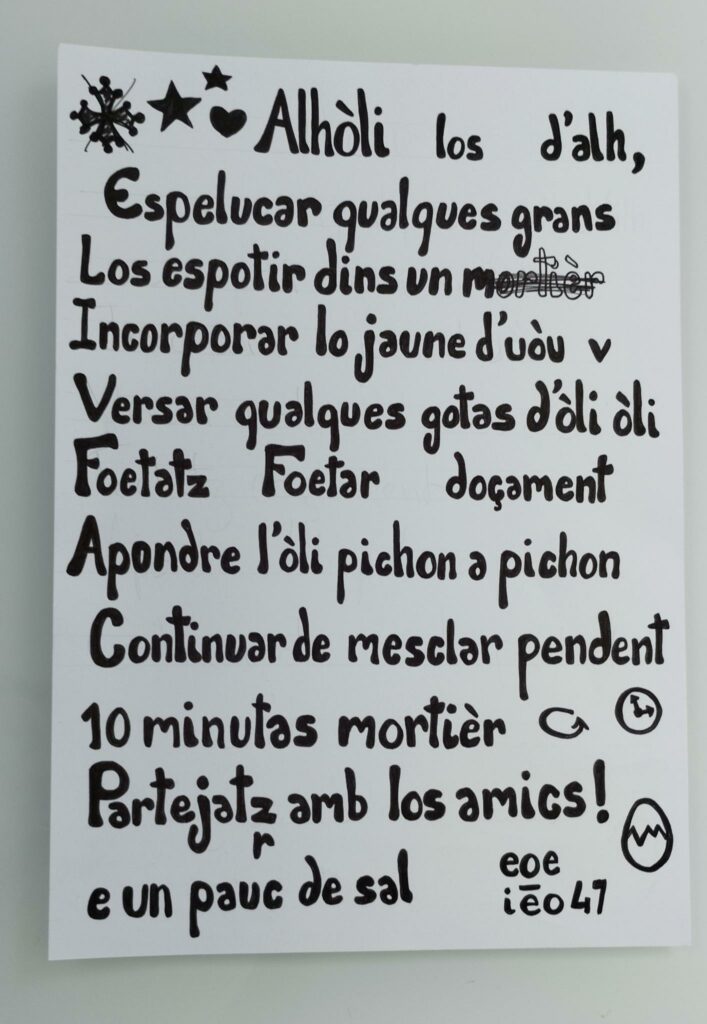 Alhòli los d'alh,
Espelucar qualques grans
Los espotir dins un mortièr
Incorporar lo jaune d'uòu v
Versar qualques gotas d'òli òli
Foetatz Foetar doçament
Apondre l'òli pichon a pichon
Continuar de mesclar pendent
10 minutas mortièr
Partejatz amb los amics!
r
e un pauc de sal
eoe
iēo 47